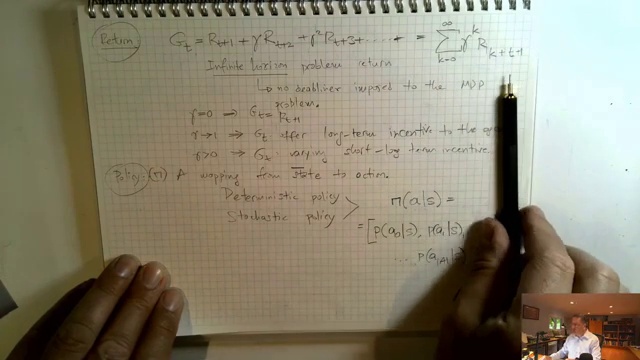 Return G_t = R_{t+1} + γ R_{t+2} + γ² R_{t+3} + ..... + = Σ_{k=0}^{∞} γ^k R_{k+t+1}
Infinite horizon problem return
↳ no deadline imposed to the MDP
problem.
γ=0 → G_t = R_{t+1}
γ→1 → G_t offer long-term incentive to the
γ>0 → G_t varying short-long term incentive.
Policy: (π) A mapping from state to action.
Deterministic policy
Stochastic policy
π(a|s) =
= [p(a_0|s), p(a_1|s),
... p(a_{|A|}|s)